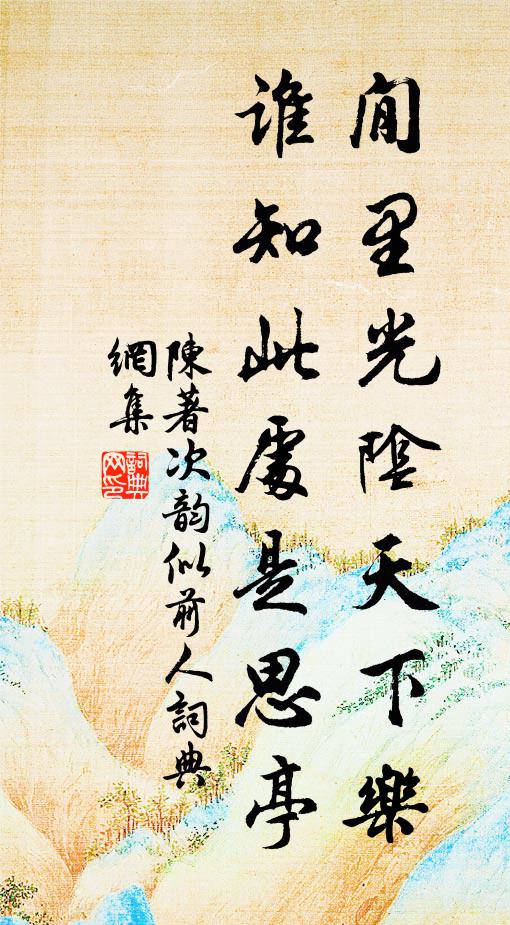 閒里光陰天下樂
誰知此處是思亭
陳著次韵似前人詞典
網集
詞典
网印